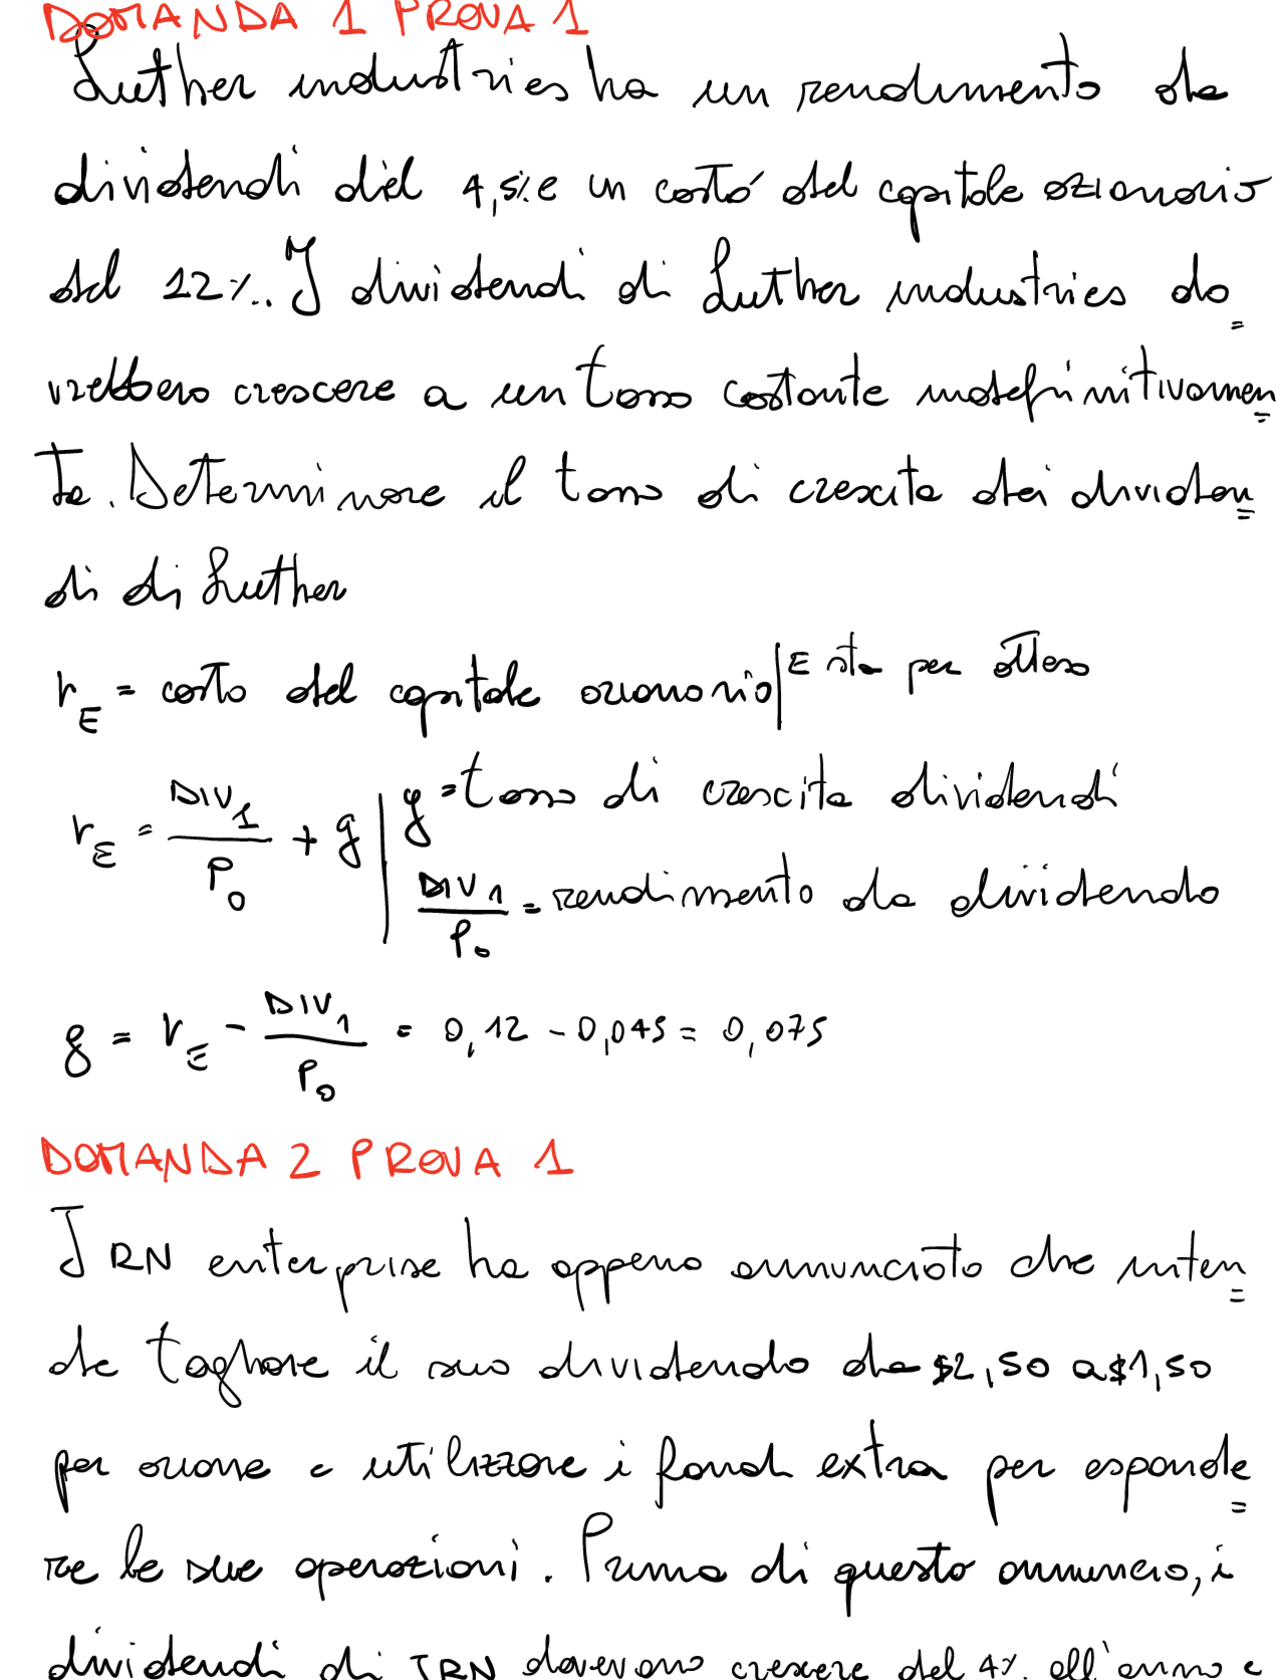 DOMANDA 1 PROVA 1
Luther industries ha un rendimento da
dividendi del 4,5% e un costo del capitale azionario
del 12%. I dividendi di Luther industries do=
vrebbero crescere a un tasso costante indefinitivamen=
te. Determinare il tasso di crescita dei dividen=
di di Luther
r_E = costo del capitale azionario | E sta per atteso
r_E = DIV_1 / P_0 + g | g = tasso di crescita dividendi
DIV_1 / P_0 = rendimento da dividendo
g = r_E - DIV_1 / P_0 = 0,12 - 0,045 = 0,075
DOMANDA 2 PROVA 1
JRN enterprise ha appena annunciato che inten=
de tagliare il suo dividendo da $2,50 a $1,50
per azione e utilizzare i fondi extra per espande=
re le sue operazioni. Prima di questo annuncio, i
dividendi di JRN dovevano crescere del 4% all'anno e